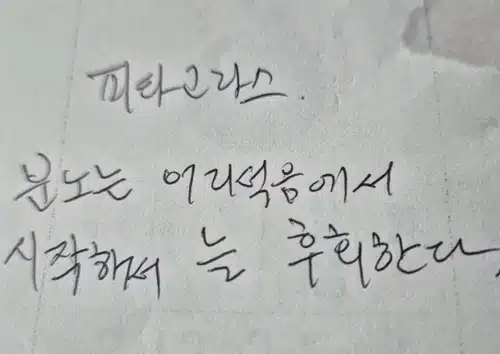 피타고라스.
분노는 어리석음에서
시작해서 늘 후회한다.